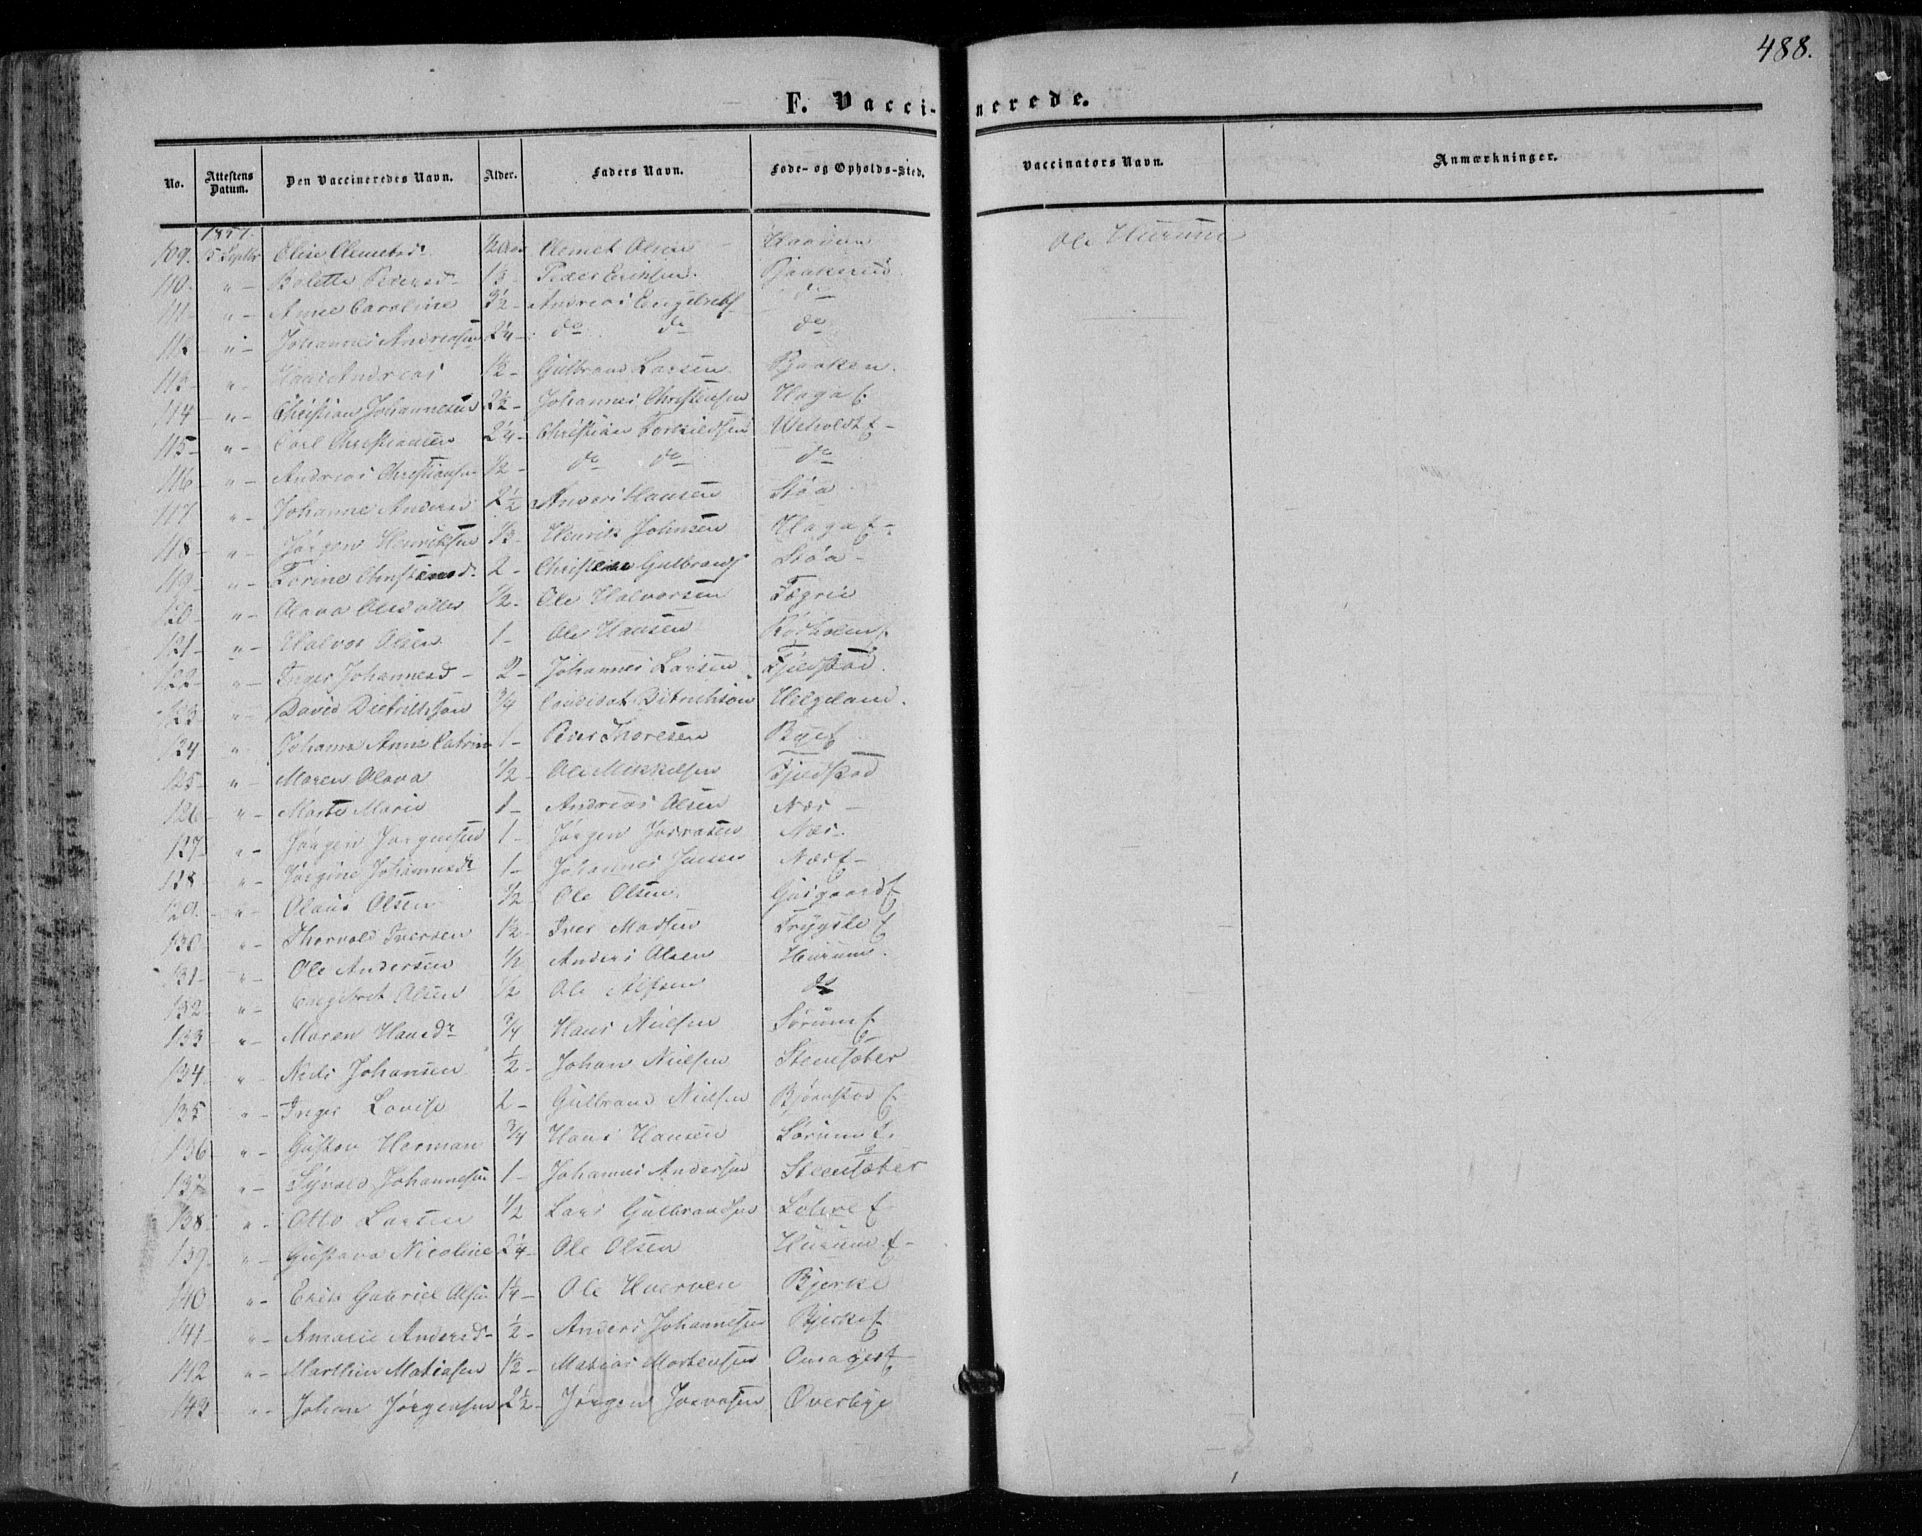 488.
F. Vaccinerede.
No. Attestens Datum. Den Vaccineredes Navn. Alder. Faders Navn. Føde- og Opholds-Sted. Vaccinators Navn. Anmærkninger.
1851.
109. 5 Septbr Olise Clemetsd. 1/2 Clemet Olsen Ole Hurum
110. " Bolette Pedersd 1/3 Peder Eriksen
111 " Anne Caroline 3 1/2 Andreas Engebrets do
112 " Johannes Andreasen 2 1/4 do do do
113 " Hans Andreas 1 1/2 Gulbrand Larsen Baaken.
114 " Christian Johannesen 2 1/2 Johannes Christensen Haga E.
115 " Carl Christiansen 2 1/4 Christian
116 " Andreas Christiansen 1/2 do do do
117 " Johanne Andersd 2 1/2 Anders Hansen Støa
118 " Jørgen Henriksen 1/3 Henrik Johnsen Haga E.
119 " Torine Christensd. 2 Christen Gulbrands Støa
120 " Olava Olesdatter 1/2 Ole Halvorsen
121 " Halvor Olsen 1 Ole Hansen
122 " Inger Johannesd 2 Johannes Larsen Fjeldstad
123 " David Dietrichson 3/4 Candidat Ditrichson Helgeland.
124 " Johanne Anne Catrine 1 Peder Thoresen Bye E
125 " Maren Olava 1/2 Ole Mikkelsen Fjeldstad
126 " Marte Marie 1 Andreas Olsen Næs
127 " Jørgen Jørgensen 1 Jørgen Joevasen Næs
128 " Jørgine Johannesdr 1 Johannes Næs E
129. " Olaus Olsen 1/2 Ole Olsen.
130 " Thorvald Iversen 1 1/2 Iver Madsen Trygste E
131 " Ole Andersen 1/2 Anders Olsen Hurum.
132 " Engebret Olsen 1/2 Ole do
133 " Maren Hansdr 3/4 Hans Nielsen Sørum E
134 " Nils Johansen 1/2 Johan Nielsen Steensæter
135 " Inger Lovise 2 Gulbrand Nielsen Bjørnstad E
136 " Gustav Herman 3/4 Hans Hansen Sørum E.
137 " Syver Johannesen 1 Johannes Andersen Steensæter
138 " Otto Larsen 1/2 Lars Gulbrandsen
139 " Gustava Nicoline 2 1/4 Ole Olsen Hurum E
140 " Erik Gabriel Olsen 1/4 Ole Huerven Bjerke
141 " Amalie Andersd 1/2 Anders Johannesen Bjerke E
142 " Marthin Matiasen 1 1/2 Matias Mortensen
143 " Johan Jørgensen 2 1/2 Jørgen Joevasen Øverbye